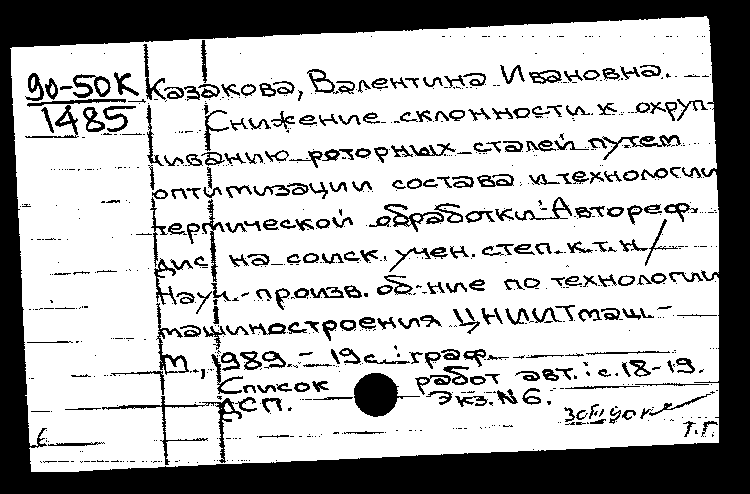 90-50К Казакова, Валентина Ивановна.
1485 Снижение склонности к охруп-
чиванию роторных сталей путем
оптимизации состава и технологии
термической обработки: Автореф.
дис. на соиск. учен. степ. к.т.н /
Науч.-произв. об-ние по технологии
машиностроения ЦНИИТмаш.-
М, 1989. - 19 с.: граф.
Список работ авт.: с. 18-19.
ДСП. Экз. N 6.
6
Т.Г.